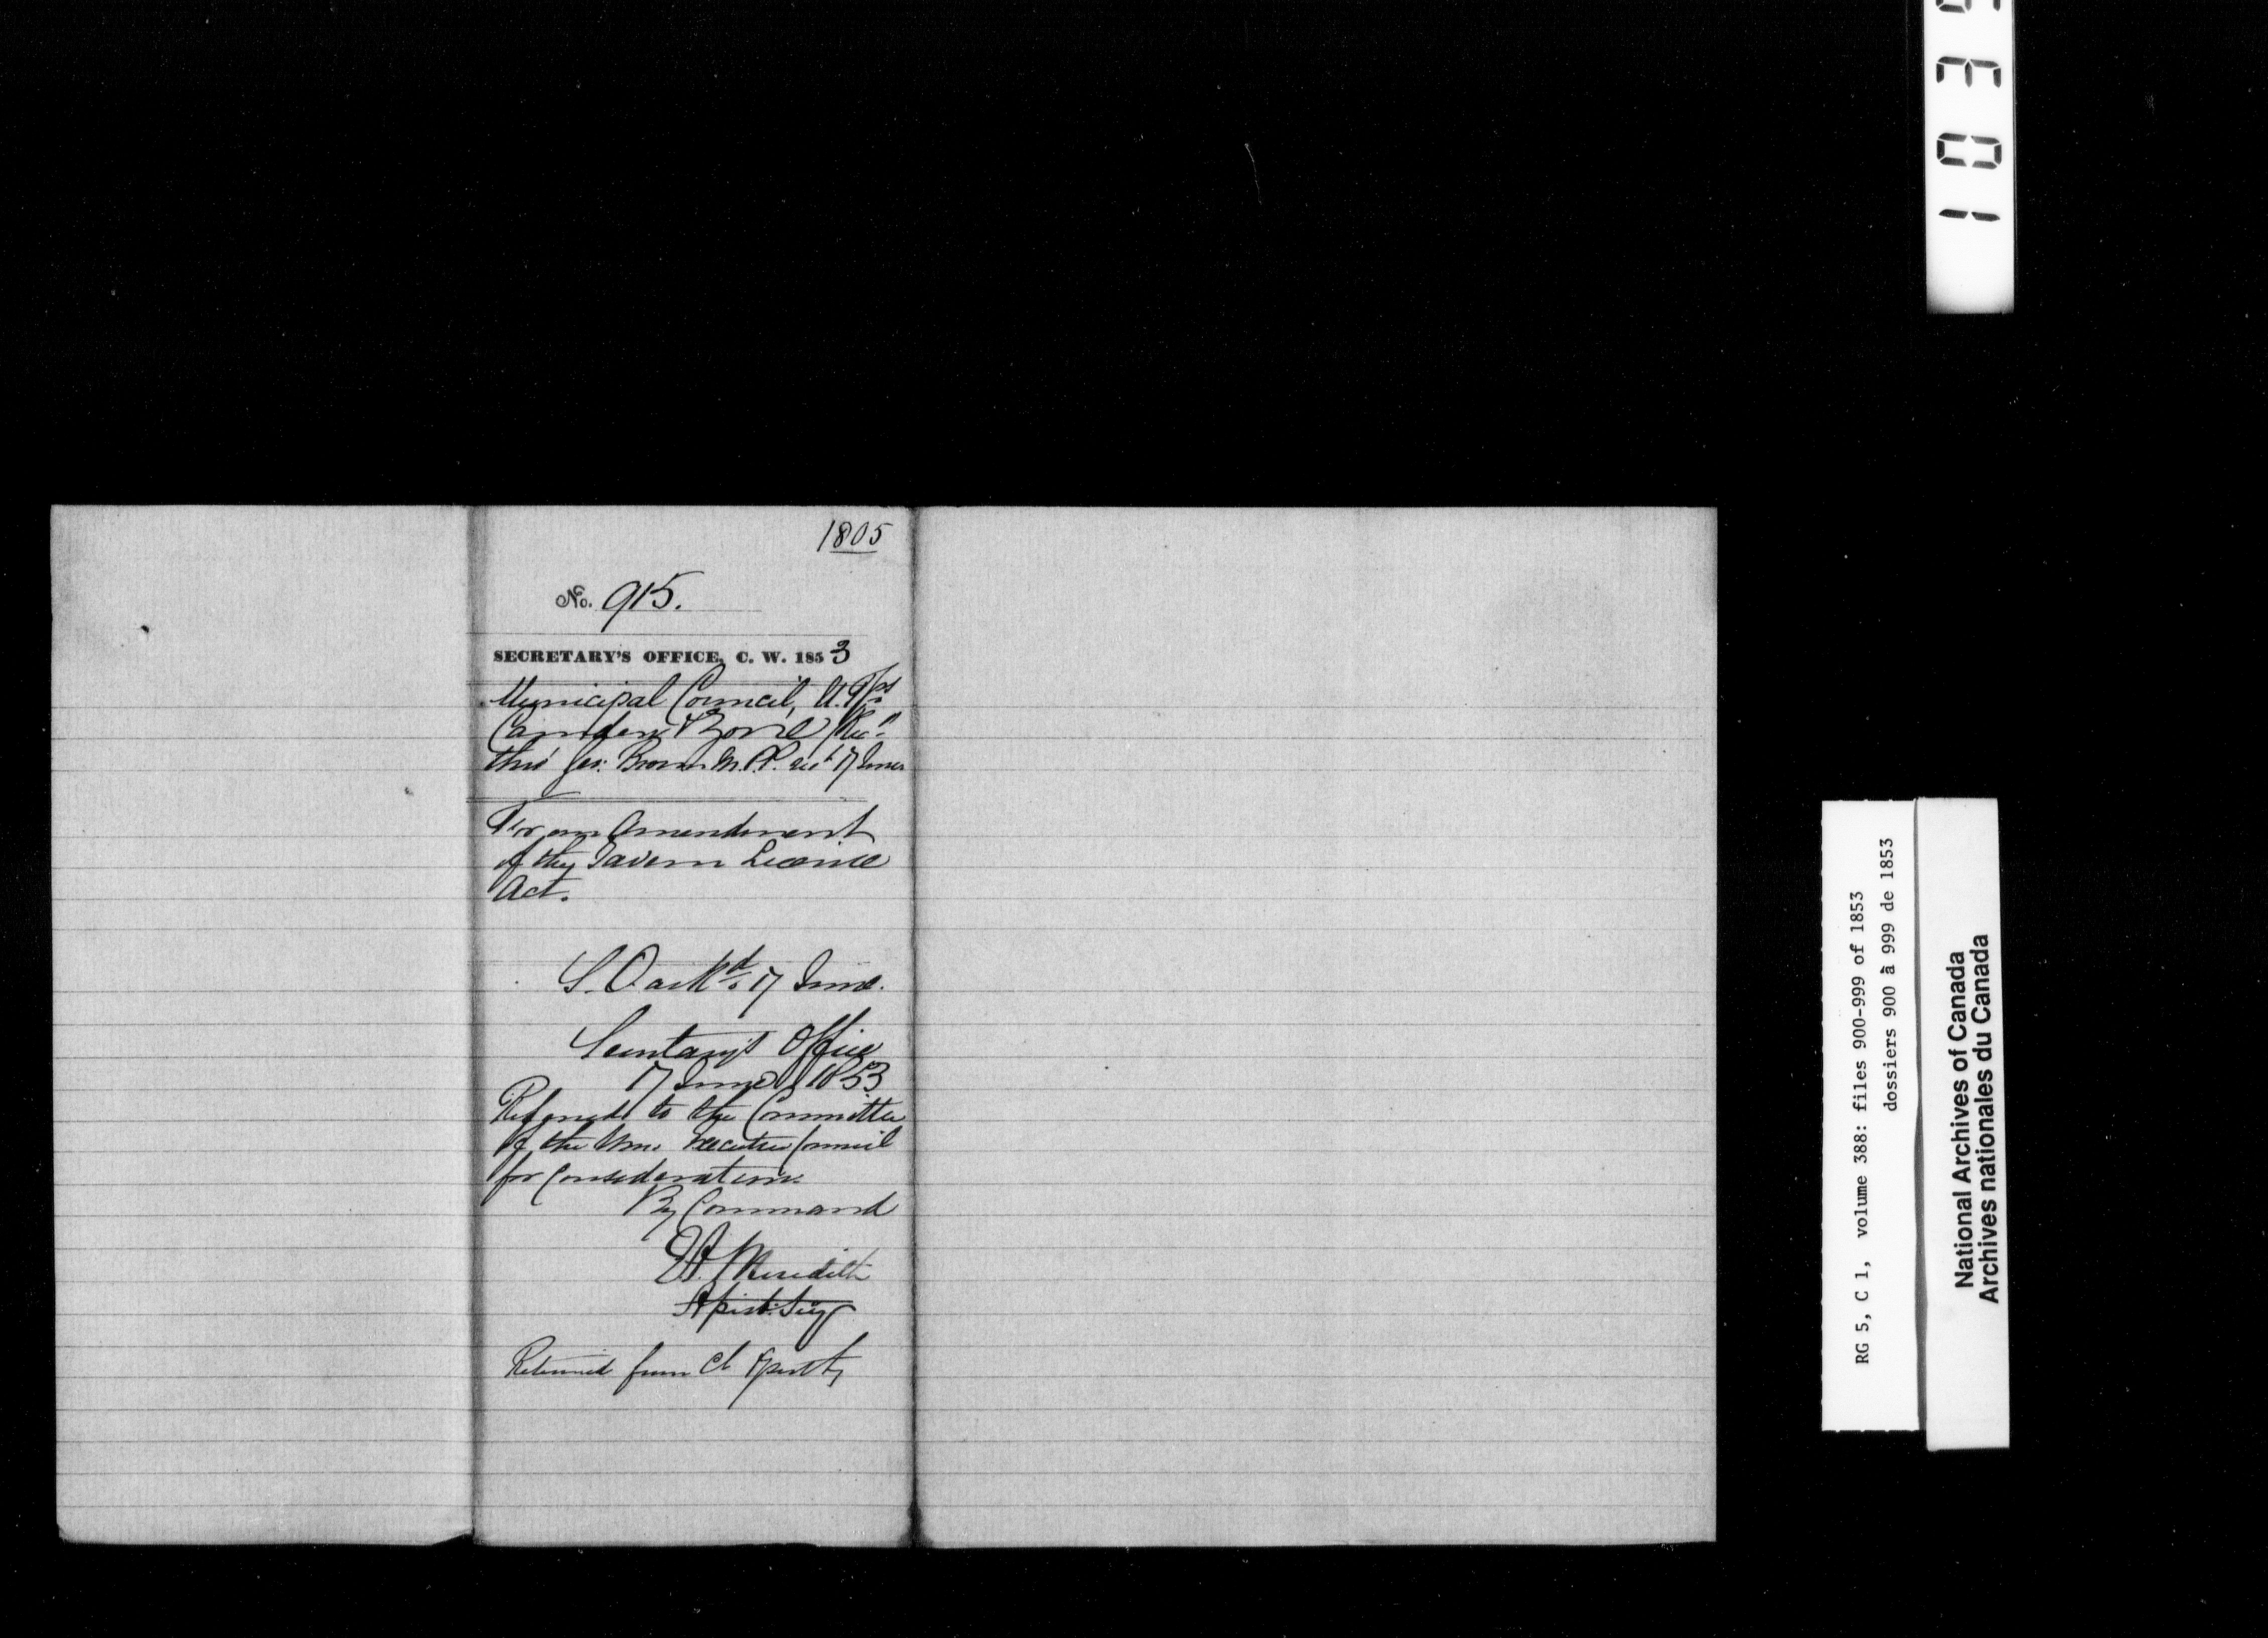 1805
No. 915.
SECRETARY'S OFFICE, C. W. 1853
Municipal Council, U. Tps
Camden & Zone (Recd
thro' Geo: Brown M.P.P. recd 17 June
For an Amendment
of the Tavern License
Act.
S. O. ackd 17 June.
Secretary's Office
17 June 1853
Referred to the Committee
of the Hon. Executive Council
for consideration
By Command
E A Meredith
Assist. Secy
Returned from Ct
RG 5, C 1, volume 388: files 900-999 of 1853
dossiers 900 à 999 de 1853
National Archives of Canada
Archives nationales du Canada
1 0 3